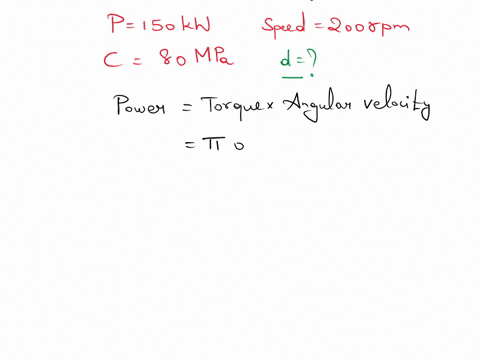 P = 150 kW Speed = 200 rpm
C = 80 MPa d = ?
Power = Torque x Angular velocity
= π 0